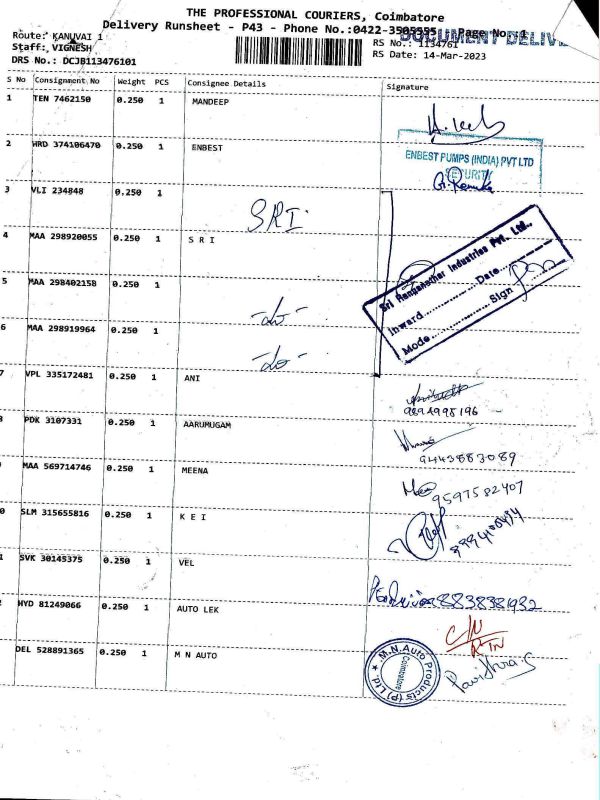 THE PROFESSIONAL COURIERS, Coimbatore
Delivery Runsheet - P43 - Phone No.:0422-3505555 Page No. 1
DOCUMENT DELIV
Route: KANUVAI 1
Staff: VIGNESH
RS No.: 1134761
DRS No.: DCJB113476101
RS Date: 14-Mar-2023
S No Consignment No Weight PCS Consignee Details Signature
1 TEN 7462150 0.250 1 MANDEEP
2 HRD 374106470 0.250 1 ENBEST
ENBEST PUMPS (INDIA) PVT LTD
SECURITY
3 VLI 234848 0.250 1 SRI
4 MAA 298920055 0.250 1 S R I
Sri Ranganathar Industries Pvt. Ltd.,
Inward Date
Mode Sign
5 MAA 298402158 0.250 1 -do-
6 MAA 298919964 0.250 1 -do-
7 VPL 335172481 0.250 1 ANI
8 PDK 3107331 0.250 1 AARUMUGAM
9443883089
MAA 569714746 0.250 1 MEENA
9597582407
0 SLM 315655816 0.250 1 K E I
1 SVK 30145375 0.250 1 VEL
8838381932
2 HYD 81249066 0.250 1 AUTO LEK
C/N
RTN
DEL 528891365 0.250 1 M N AUTO
M.N.Auto Products (P) Ltd.
Coimbatore
Pavithra.S